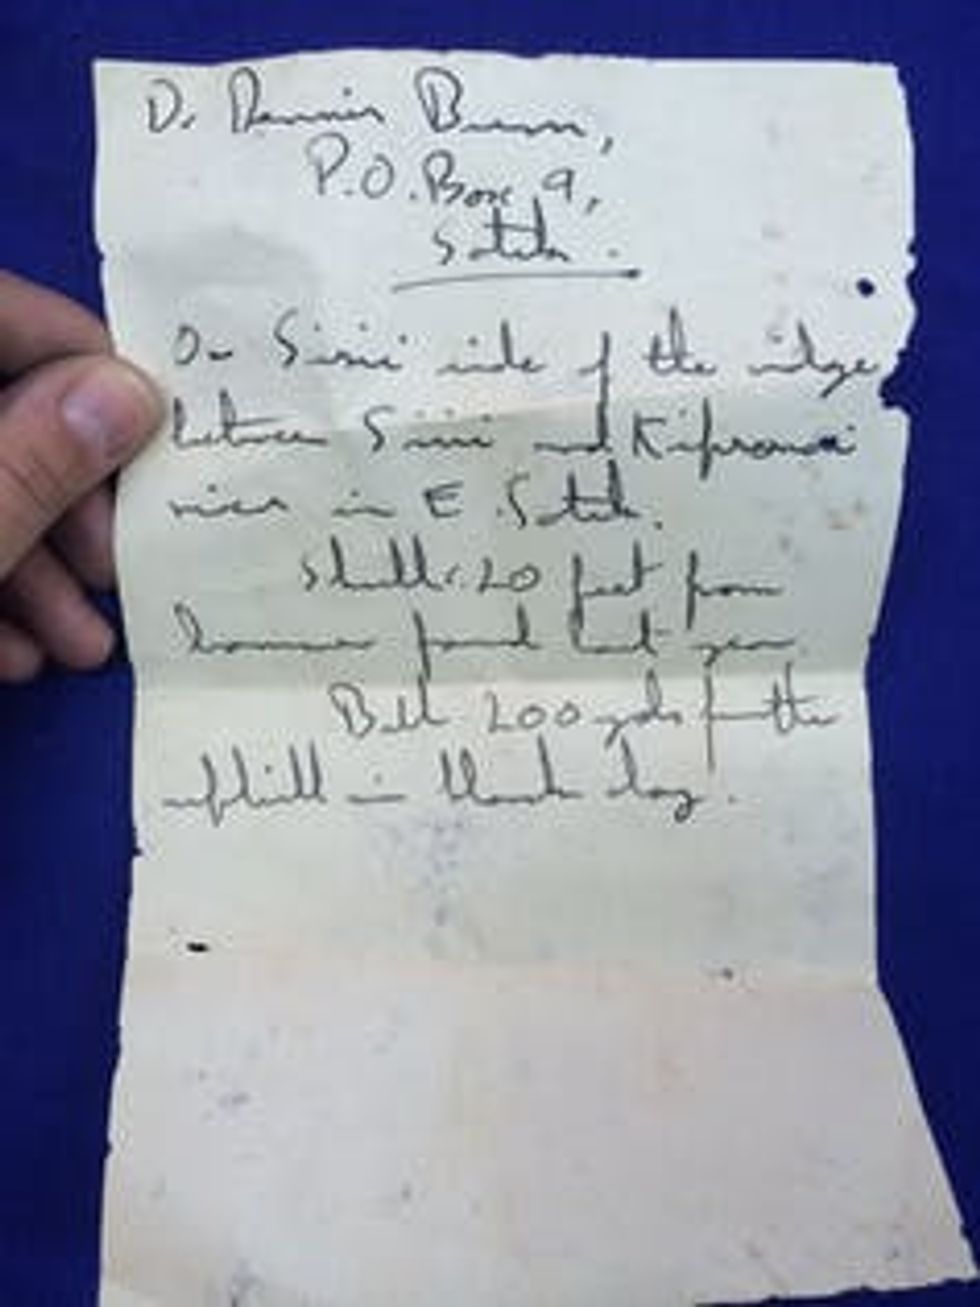 Dr Dennis Burn,
P.O. Box 9,
Sotik.
On Sisei side of the ridge
between Sisei and Kipsonoi
rivers in E. Sotik.
Skull: 20 feet from
humerus found last year.
Belt 200 yds further
uphill in black clay.